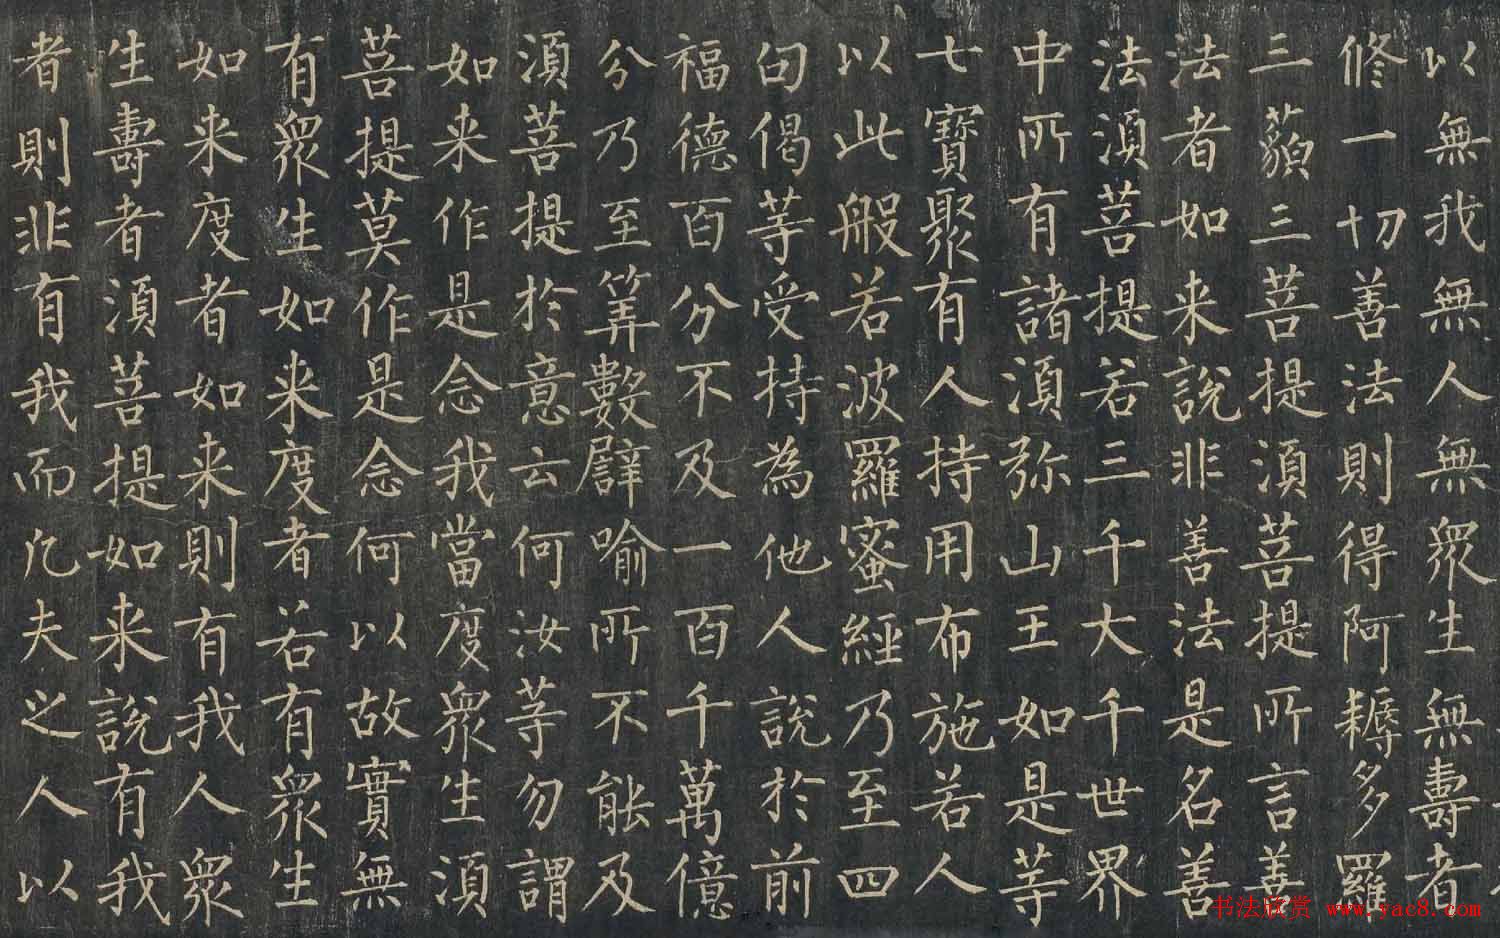 以無我無人無衆生無壽者
修一切善法則得阿耨多羅
三藐三菩提須菩提所言善
法者如来說非善法是名善
法須菩提若三千大千世界
中所有諸須弥山王如是等
七寶聚有人持用布施若人
以此般若波羅蜜經乃至四
句偈等受持為他人說於前
福德百分不及一百千萬億
分乃至筭數譬喻所不能及
須菩提於意云何汝等勿謂
如来作是念我當度衆生須
菩提莫作是念何以故實無
有衆生如来度者若有衆生
如来度者如来則有我人衆
生壽者須菩提如来說有我
者則非有我而凡夫之人以
书法欣赏 www.yac8.com